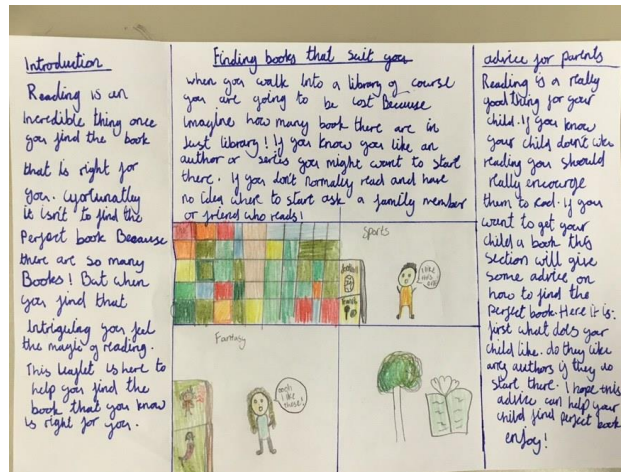 Introduction
Reading is an
incredible thing once
you find the book
that is right for
you.
it isn't to find the
Perfect book Because
there are so many
Books! But when
you find that
Intriguing you feel
the magic of reading.
This leaflet is here to
help you find the
book that you know
is right for you.
Finding books that suit you
when you walk into a library of course
you are going to be lost Because
imagine how many book there are in
Just library! If you know you like an
author or series you might want to start
there. If you don't normally read and have
no idea where to start ask a family member
or friend who reads!
Sports
football
tennis
I like
this
Fantasy
oooh
I like
these!
advice for parents
Reading is a really
good thing for your
child. If you know
your child don't like
reading you should
really encourge
them to read. if you
want to get your
child a book this
section will give
some advice on
how to find the
perfect book. Here it is:
first what does your
child like. do they like
any authors if they do
start there. I hope this
advice can help your
child find perfect book
enjoy!